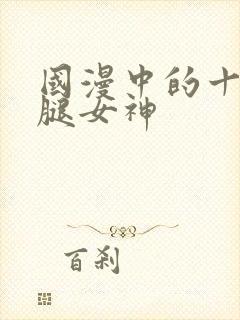 國漫中的十
腿女神
百刹